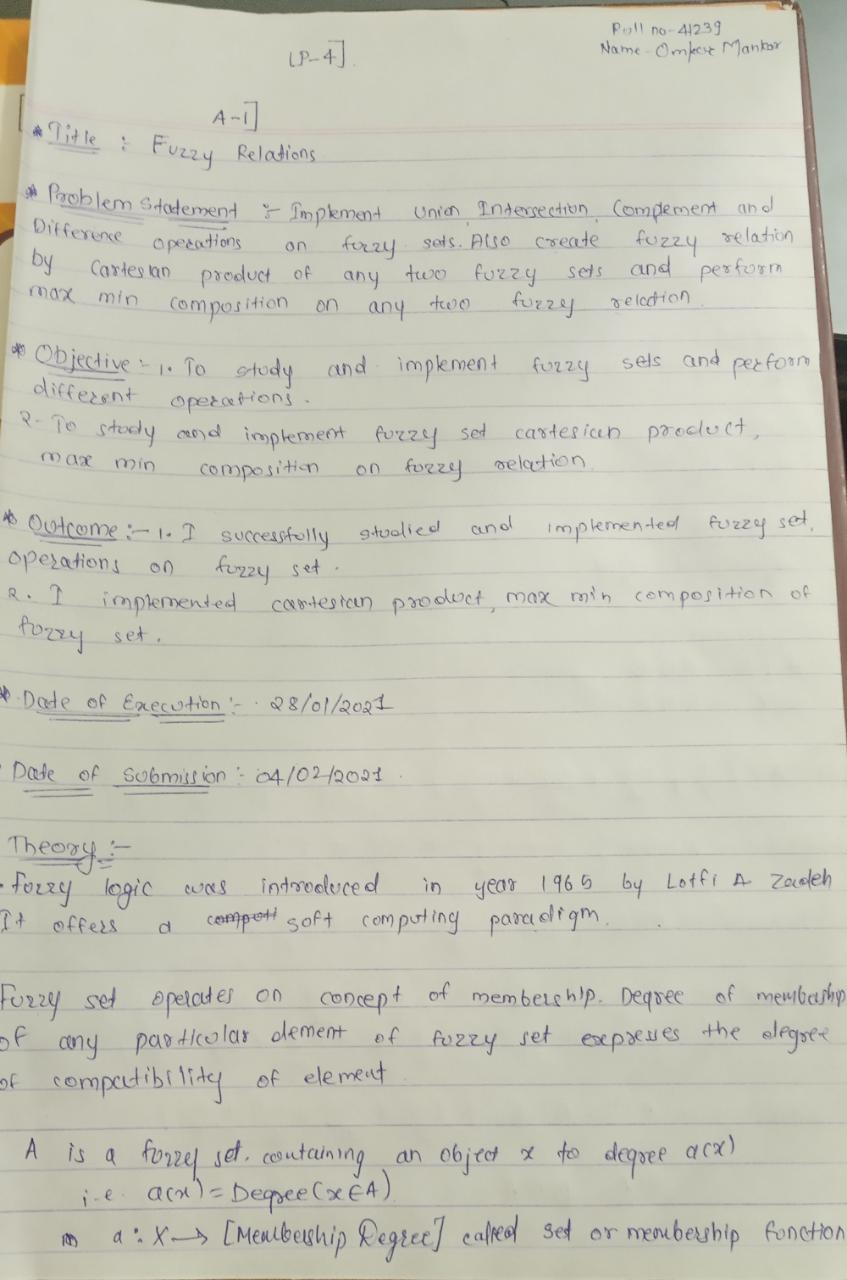 Roll no-41239
Name - Omkar Mankar
[P-4].
A-1]
* Title : Fuzzy Relations
* Problem Statement :- Implement Union, Intersection, Complement and
Difference operations on fuzzy sets. Also create fuzzy relation
by Cartesian product of any two fuzzy sets and perform
max min composition on any two fuzzy relation.
* Objective :- 1. To study and implement fuzzy sets and perform
different operations.
2. To study and implement fuzzy set cartesian product,
max min composition on fuzzy relation.
* Outcome :- 1. I successfully studied and implemented fuzzy set,
operations on fuzzy set.
2. I implemented cartesian product, max min composition of
fuzzy set.
* Date of Execution :- 28/01/2021
Date of Submission :- 04/02/2021.
Theory :-
• Fuzzy logic was introduced in year 1965 by Lotfi A Zadeh
It offers a soft computing paradigm.
Fuzzy set operates on concept of membership. Degree of membership
of any particular element of fuzzy set expresses the degree
of compatibility of element.
A is a fuzzy set, containing an object x to degree a(x)
i.e. a(x) = Degree(x∈A)
a : X → [Membership Degree] called set or membership function